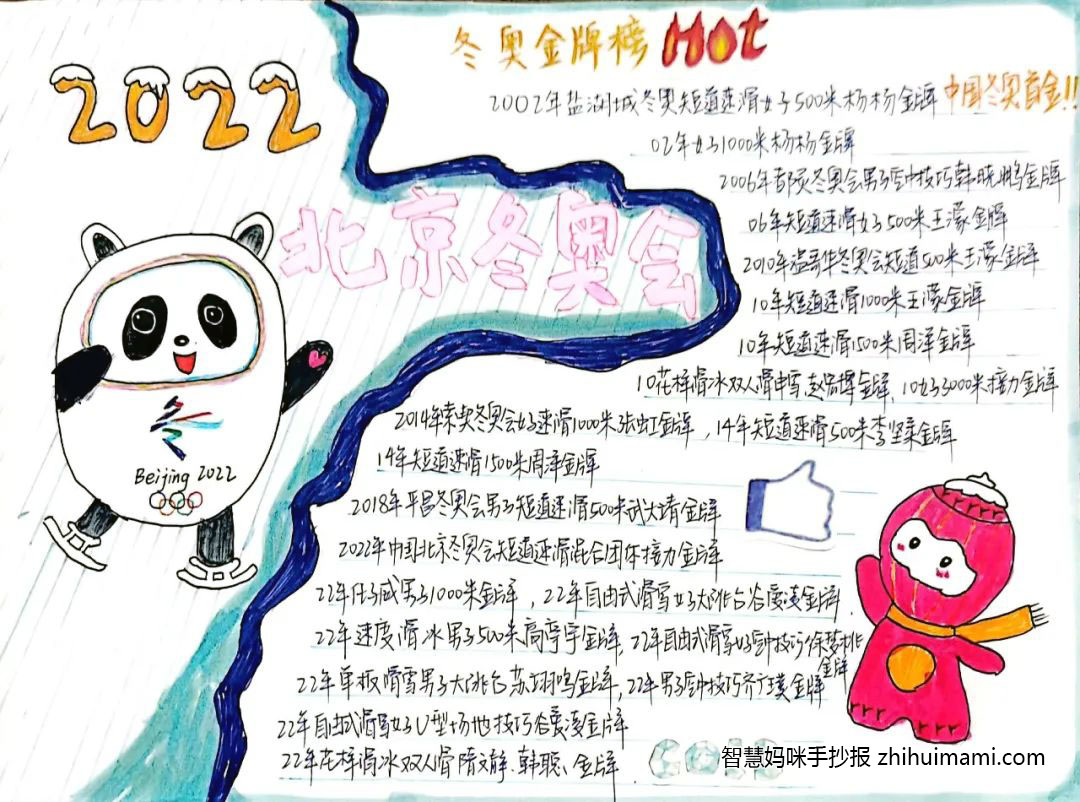 2022
冬奥金牌榜 Hot
2002年盐湖城冬奥短道速滑女子500米杨杨金牌 中国冬奥首金!!
02年女子1000米杨杨金牌
2006年都灵冬奥会男子空中技巧韩晓鹏金牌
06年短道速滑女子500米王濛金牌
北京冬奥会
2010年温哥华冬奥会短道500米王濛金牌
10年短道速滑1000米王濛金牌
10年短道速滑1500米周洋金牌
10花样滑冰双人滑申雪.赵宏博金牌.10女子3000米接力金牌
2014年索契冬奥会女子速滑1000米张虹金牌,14年短道速滑500米李坚柔金牌
14年短道速滑1500米周洋金牌
Beijing 2022
2018年平昌冬奥会男子短道速滑500米武大靖金牌
2022年中国北京冬奥会短道速滑混合团体接力金牌
22年任子威男子1000米金牌,22年自由式滑雪女子大跳台谷爱凌金牌.
22年速度滑冰男子500米高亭宇金牌,22年自由式滑雪女子空中技巧徐梦桃
金牌
22年单板滑雪男子大跳台苏翊鸣金牌,22年男子空中技巧齐广璞金牌
22年自由式滑雪女子U型场地技巧谷爱凌金牌
22年花样滑冰双人滑隋文静.韩聪、金牌.
智慧妈咪手抄报 zhihuimami.com